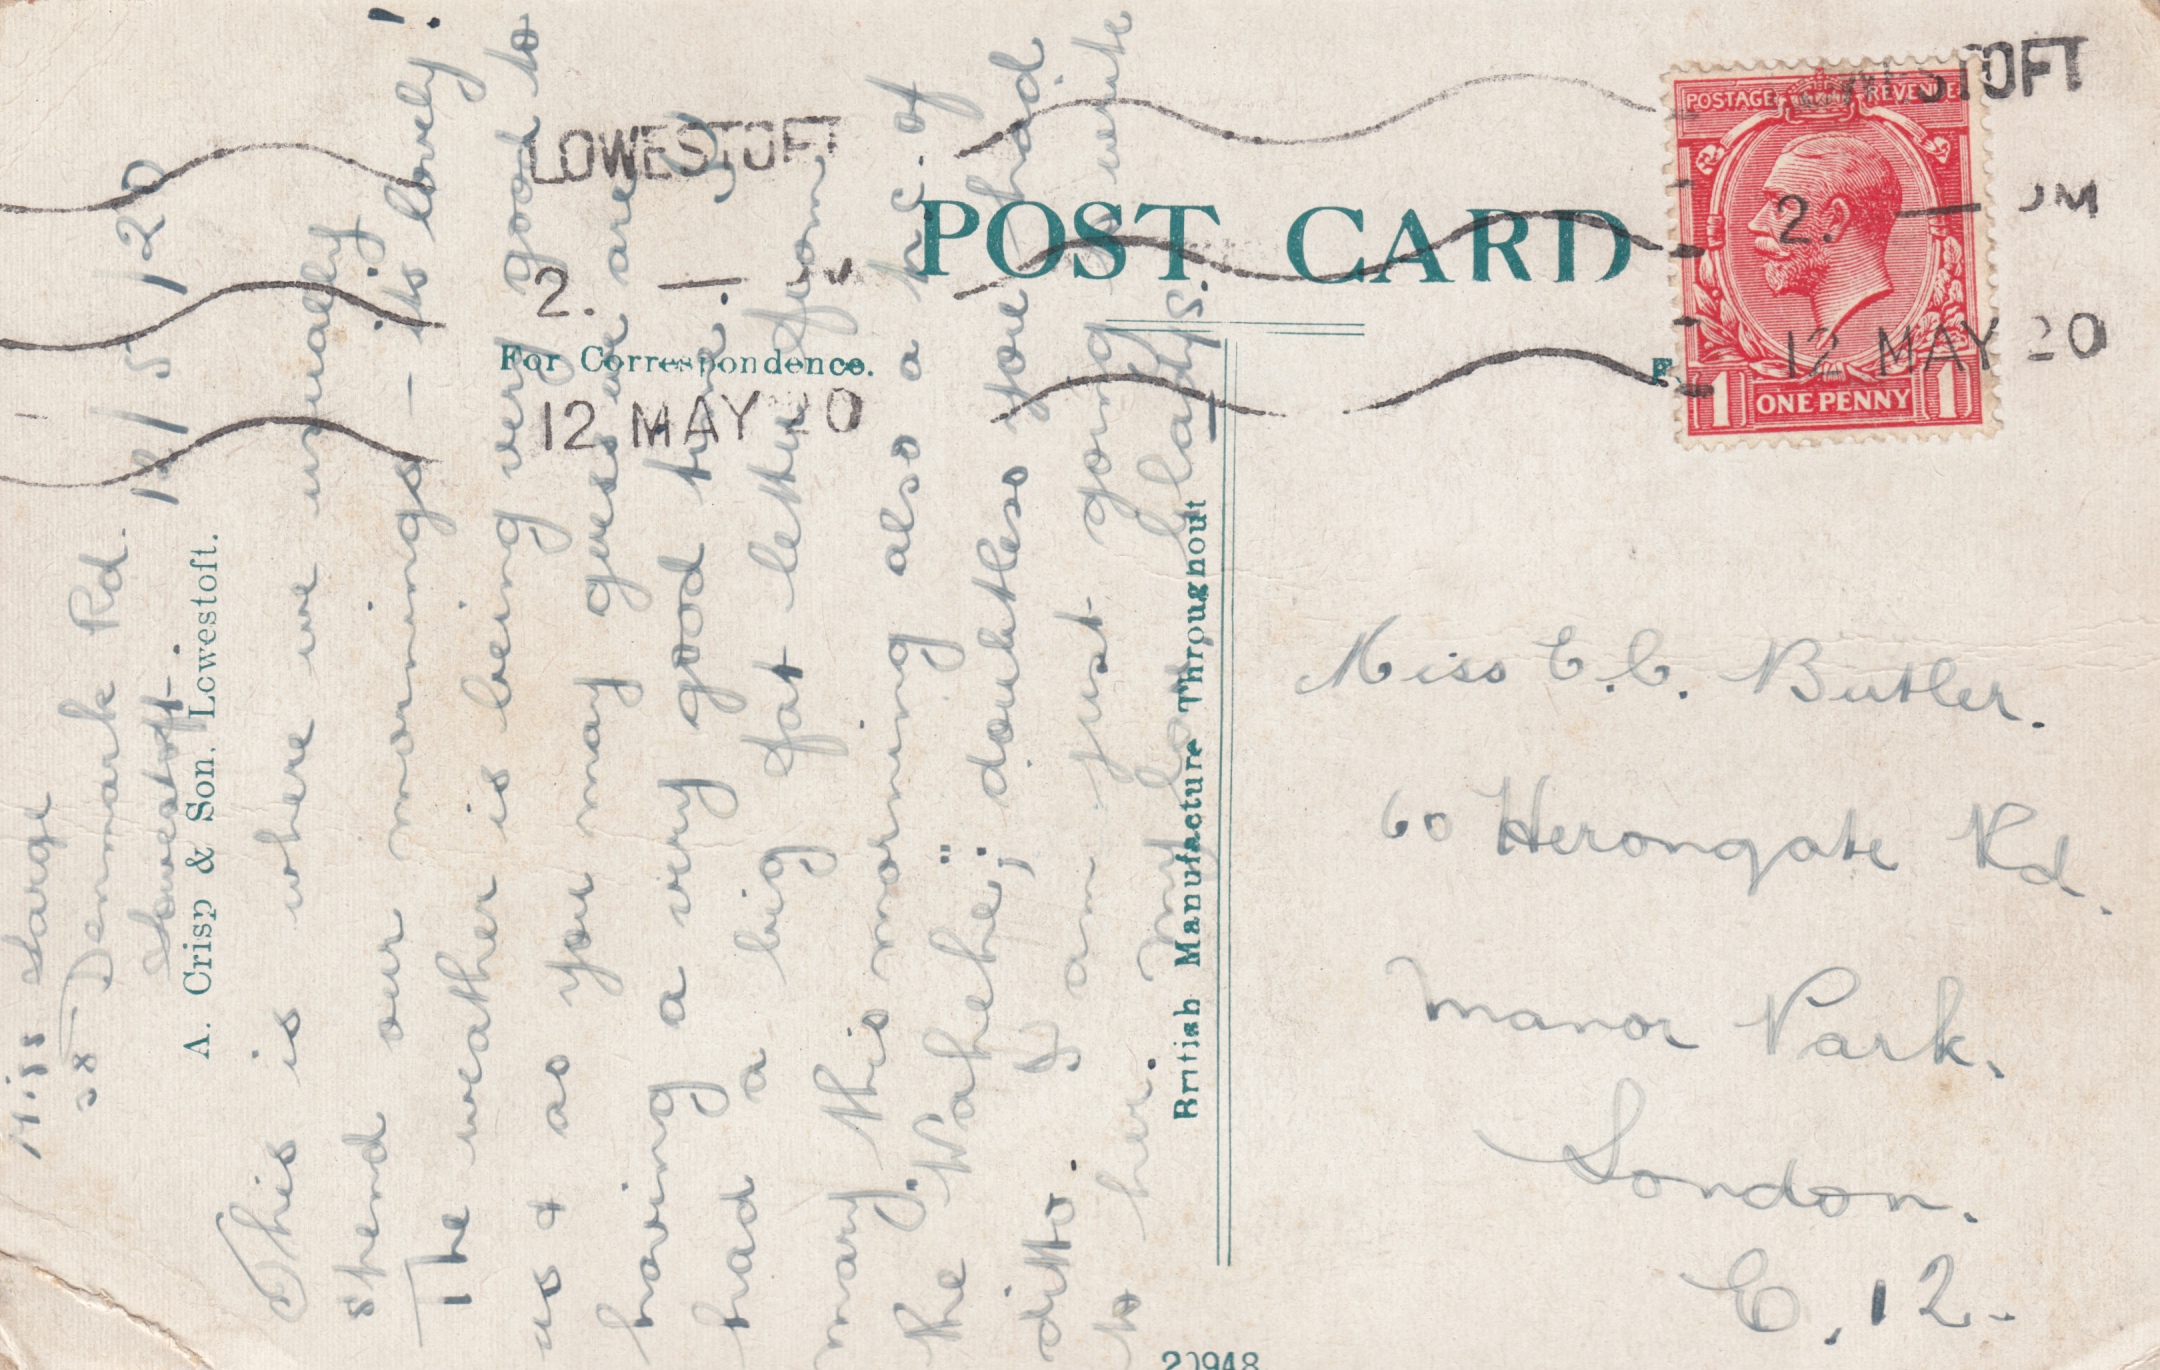 LOWESTOFT
2. — PM
12 MAY 20
LOWESTOFT
2. —
12 MAY 20
POST CARD
For Correspondence.
POSTAGE REVENUE
1 ONE PENNY 1
Miss E. C. Butler.
60 Herongate Rd.
Manor Park.
London.
E. 12.
Miss
Denmark Rd.
Lowestoft.
12/5/20
A. Crisp & Son. Lowestoft.
This is where we usually
spend our mornings – its lovely!
The weather is being very good to
us & as you may guess we are
having a very good time. I
had a big fat letter from
mary this morning also a p.c. of
the "Wahehe"; doubtless you had
ditto. I am just going to write
to her. my love
British Manufacture Throughout
20948